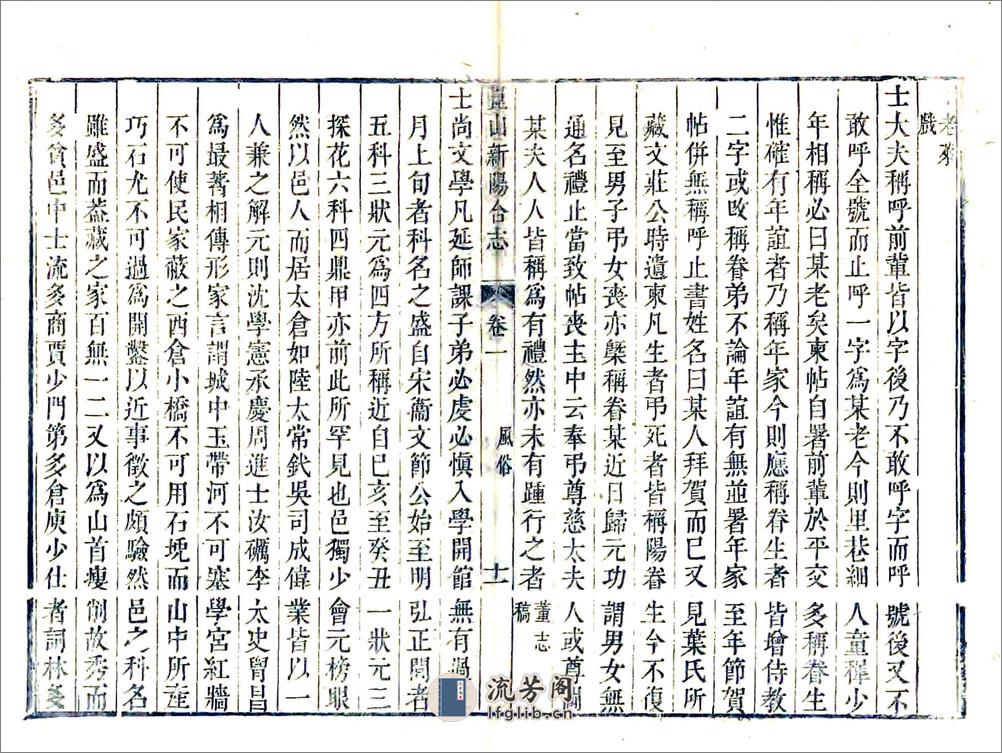 老萊
戲
士大夫稱呼前輩皆以字後乃不敢呼字而呼號後又不
敢呼全號而止呼一字爲某老今則里巷細人童穉少
年相稱必曰某老矣柬帖自署前輩於平交多稱眷生
惟確有年誼者乃稱年家今則應稱眷生者皆增侍教
二字或改稱眷弟不論年誼有無並署年家至年節賀
帖併無稱呼止書姓名曰某人拜賀而已又見葉氏所
藏文莊公時遺柬凡生者弔死者皆稱陽眷生今不復
見至男子弔女喪亦槩稱眷某近日歸元功謂男女無
通名禮止當致帖喪主中云奉弔尊慈太夫人或尊閫
某夫人人皆稱爲有禮然亦未有踵行之者董志稿
崑山新陽合志 卷一 風俗 十一
士尚文學凡延師課子弟必虔必愼入學開館無有過
月上旬者科名之盛自宋衞文節公始至明弘正間者
五科三狀元爲四方所稱近自己亥至癸丑一狀元三
探花六科四鼎甲亦前此所罕見也邑獨少會元榜眼
然以邑人而居太倉如陸太常釴吳司成偉業皆以一
人兼之解元則沈學憲承慶周進士汝礪李太史胤昌
爲最著相傳形家言謂城中玉帶河不可塞學宮紅牆
不可使民家蔽之西倉小橋不可用石堍而山中所產
巧石尤不可過爲開鑿以近事徵之頗驗然邑之科名
雖盛而葢藏之家百無一二又以爲山首瘦削故秀而
多貧邑中士流多商賈少門第多倉庾少仕者詞林多
流芳阁
lfglib.cn